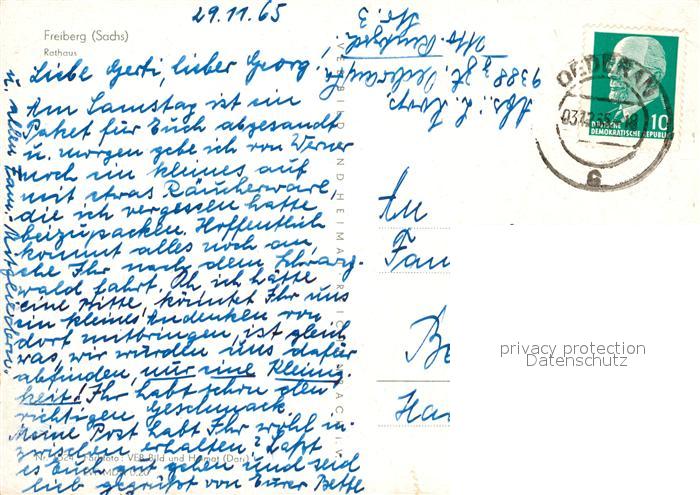 29.11.65
Freiberg (Sachs)
Rathaus
Liebe Gerti, lieber Georg!
Am Samstag ist ein
Paket für Euch abgesandt
u. morgen gebe ich von Werner
noch ein kleines auf
mit etwas Räucherware,
die ich vergessen hatte
beizupacken. Hoffentlich
kommt alles noch an,
ehe Ihr nach dem Schwarz-
wald fahrt. Oh ich hätte
eine Bitte, könntet Ihr uns
ein kleines Andenken von
dort mitbringen, ist gleich
was, wir würden uns dafür
abfinden, nur eine Kleinig-
keit! Ihr habt schon den
richtigen Geschmack.
Meine Post habt Ihr wohl in-
zwischen erhalten? Laßt
es Euch gut gehen und seid
lieb gegrüßt von Eurer
u. allen Fam.-Mitgliedern.
VEB BILD UND HEIMAT
Farbfoto: VEB Bild und Heimat
Abs.:
9388
Nr. 3
OEDERAN
6
10
DEUTSCHE
DEMOKRATISCHE REPUBLIK
An
Fam
Be
Han
privacy protection
Datenschutz